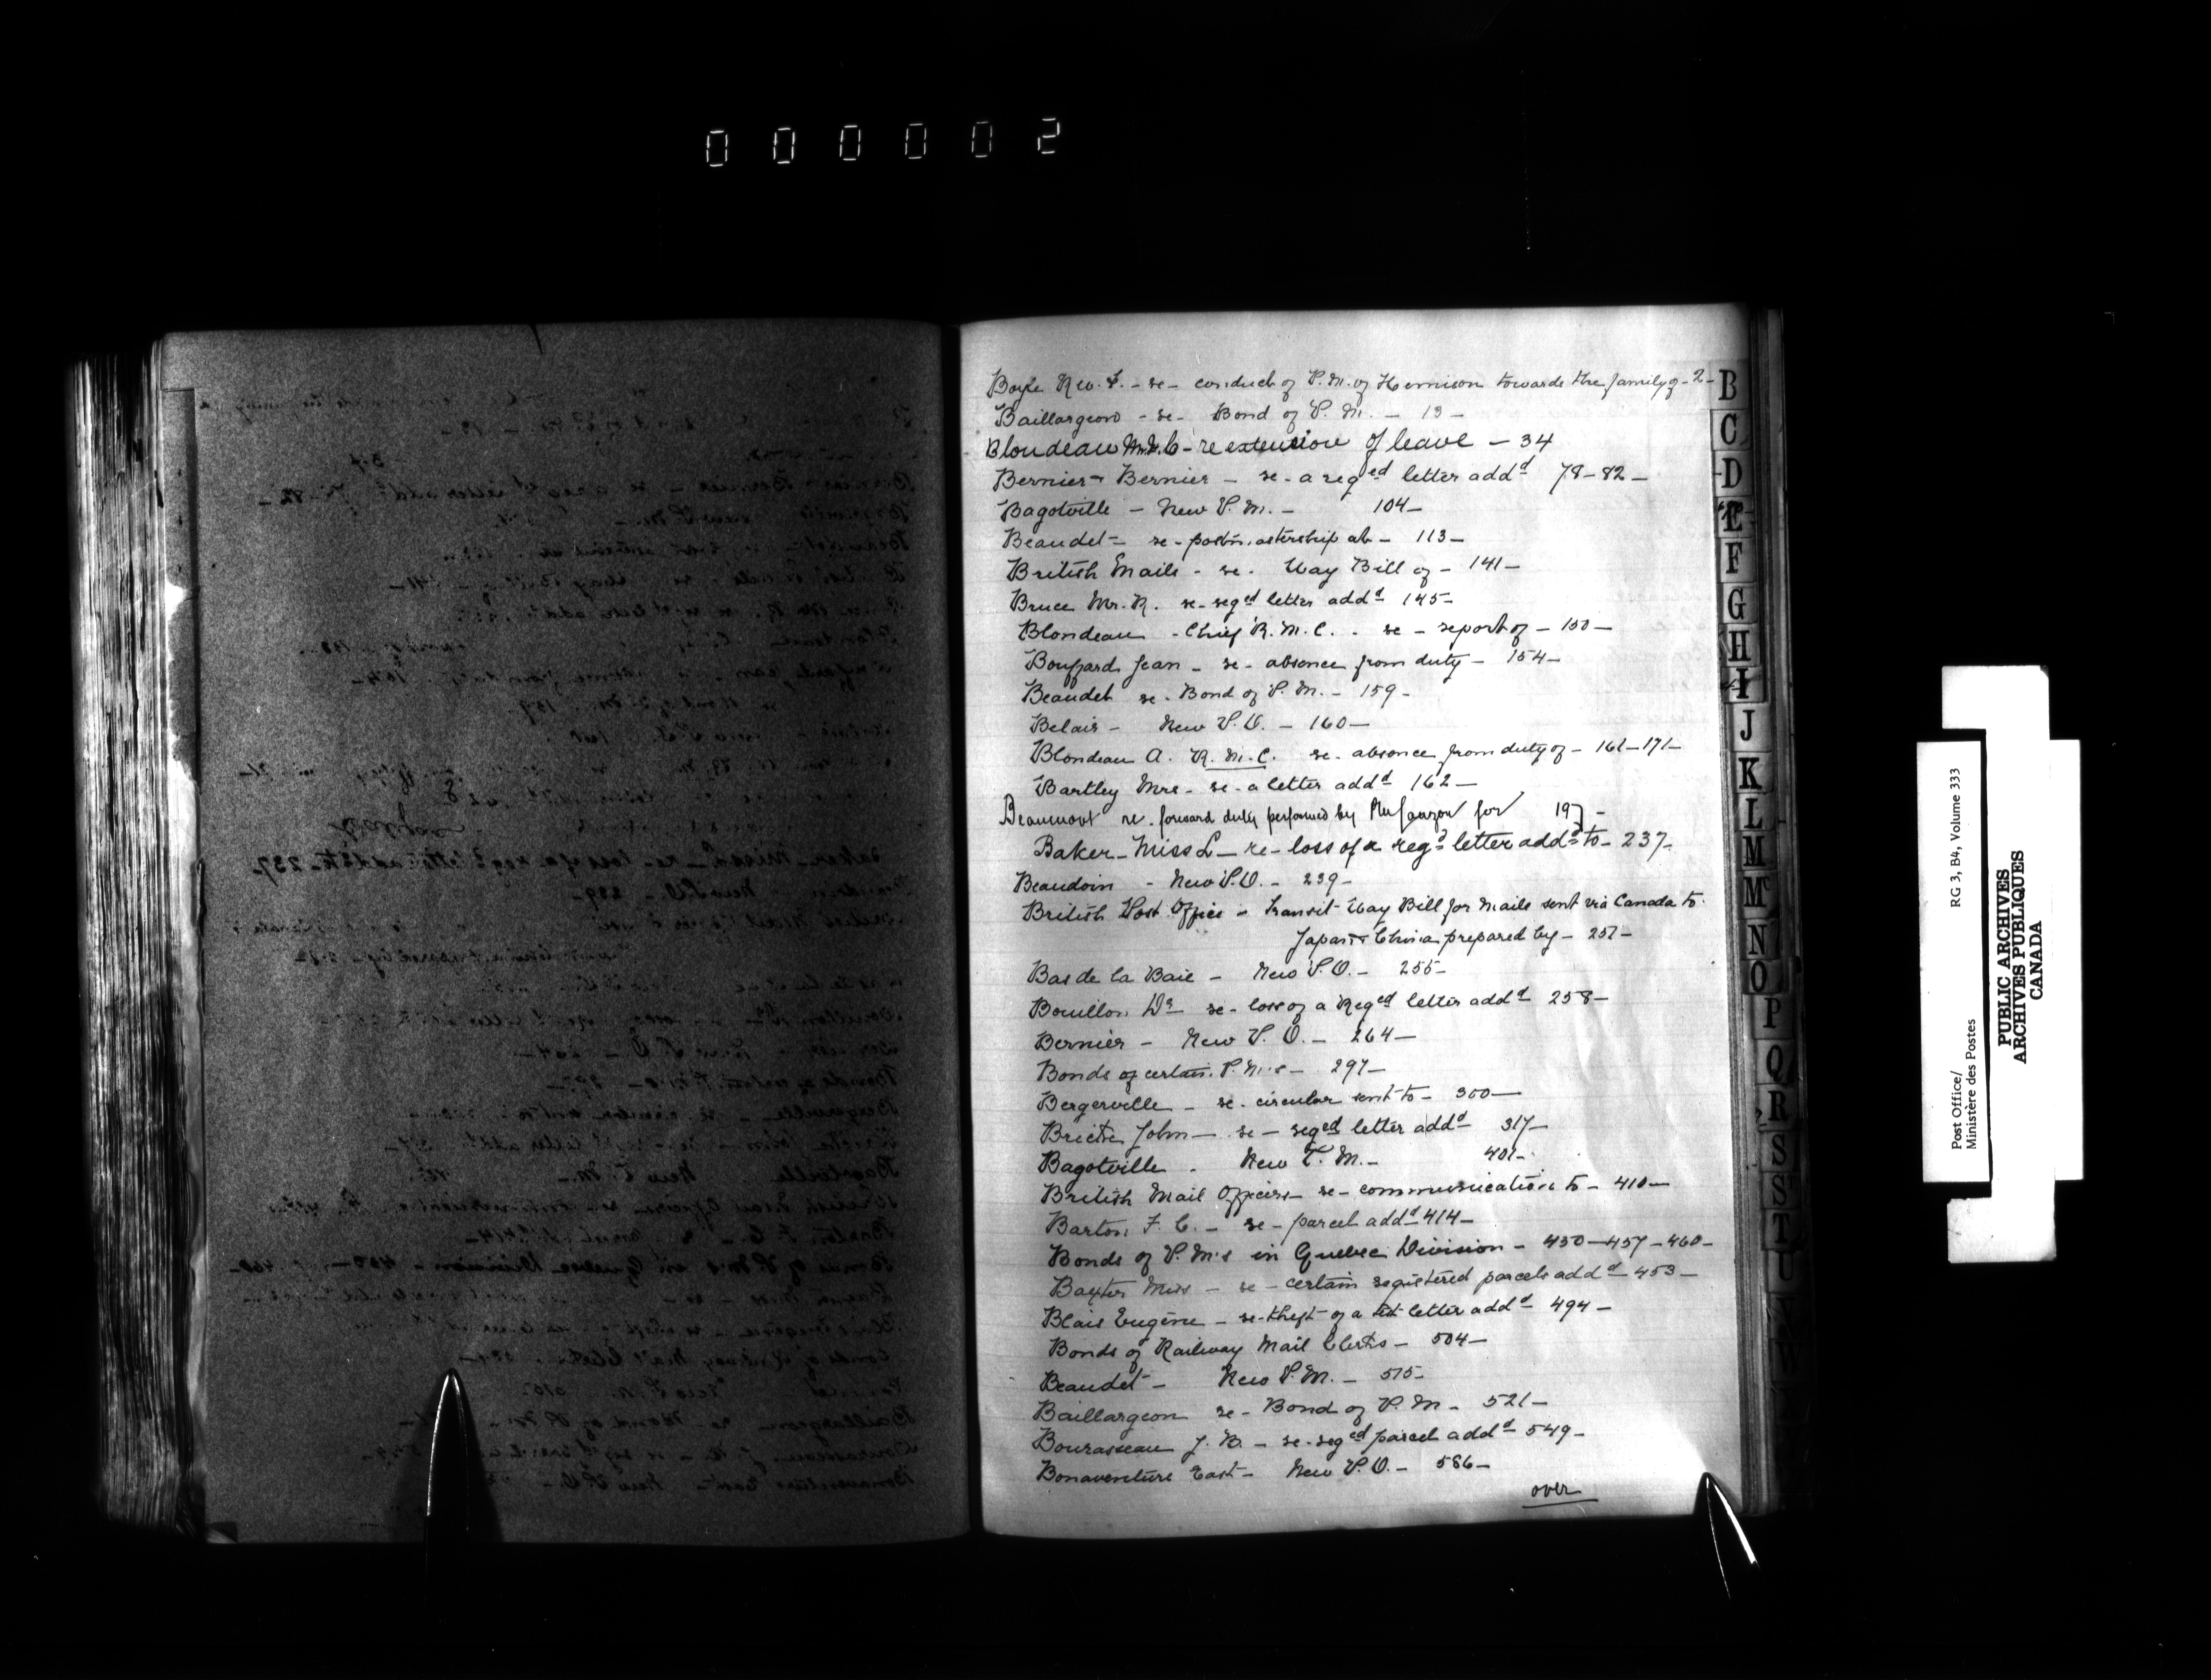 000002
Boyle Rev. F. - re - conduct of P.M. of Hemison towards the family of - 2 -
Baillargeon - re - Bond of P.M. - 13 -
Blondeau - re extension of leave - 34
Bernier - Bernier - re - a reged letter addd 78-82 -
Bagotville - New P.M. - 104 -
Beaudet - re - postmastership at - 113 -
British Mails - re - Way Bill of - 141 -
Bruce Mr. R. re - reged letter addd 145 -
Blondeau - Chief R.M.C. - re - report of - 150 -
Bouffard Jean - re - absence from duty - 154 -
Beaudet re - Bond of P.M. - 159 -
Belair - New P.O. - 160 -
Blondeau A. R.M.C. re - absence from duty of - 161-171 -
Bartley Mrs - re - a letter addd 162 -
Beaumont re. forward duty performed by for 197 -
Baker - Miss L - re - loss of a regd letter addd to - 237 -
Beaudoin - New P.O. - 239 -
British Post Office - Transit Way Bill for Mails sent via Canada to
Japan & China prepared by - 257 -
Bas de la Baie - New P.O. - 255 -
Bouillon Dr re - loss of a Reged letter addd 258 -
Bernier - New P.O. - 264 -
Bonds of certain P.M.s - 297 -
Bergerville - re - circular sent to - 300 -
John - re - reged letter addd 317 -
Bagotville - New P.M. - 401 -
British Mail Officers - re - communication to - 410 -
Barton F.C. - re - parcel addd 414 -
Bonds of P.M's in Quebec Division - 450-457-460 -
Baxter Miss - re - certain registered parcels addd - 453 -
Blais Eugène - re - theft of a letter addd 494 -
Bonds of Railway Mail Clerks - 504 -
Beaudet - New P.M. - 515 -
Baillargeon re - Bond of P.M. - 521 -
Bourasseau J.B. - re - reged parcel addd 549 -
Bonaventure East - New P.O. - 586 -
over
B
C
D
E
F
G
H
I
J
K
L
M
Mc
N
O
P
Q
R
S
S
T
U
V
W
Post Office/
Ministère des Postes
RG 3, B4, Volume 333
PUBLIC ARCHIVES
ARCHIVES PUBLIQUES
CANADA